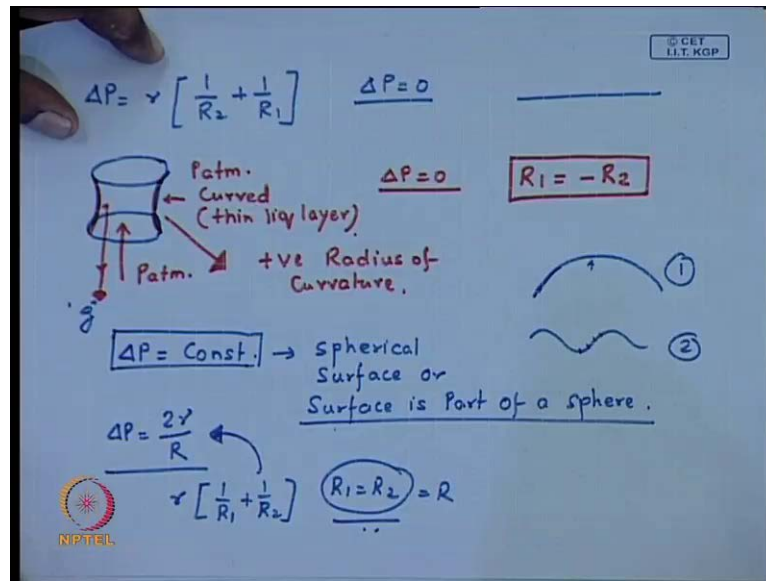 © CET
I.I.T. KGP
ΔP = γ [ 1/R2 + 1/R1 ] ΔP = 0
Patm.
Curved
(thin liq layer)
ΔP = 0 R1 = -R2
+ve Radius of
Curvature.
Patm.
'g'
①
②
ΔP = Const. → Spherical
Surface or
Surface is Part of a sphere.
ΔP = 2γ/R
γ [ 1/R1 + 1/R2 ] R1 = R2 = R
NPTEL